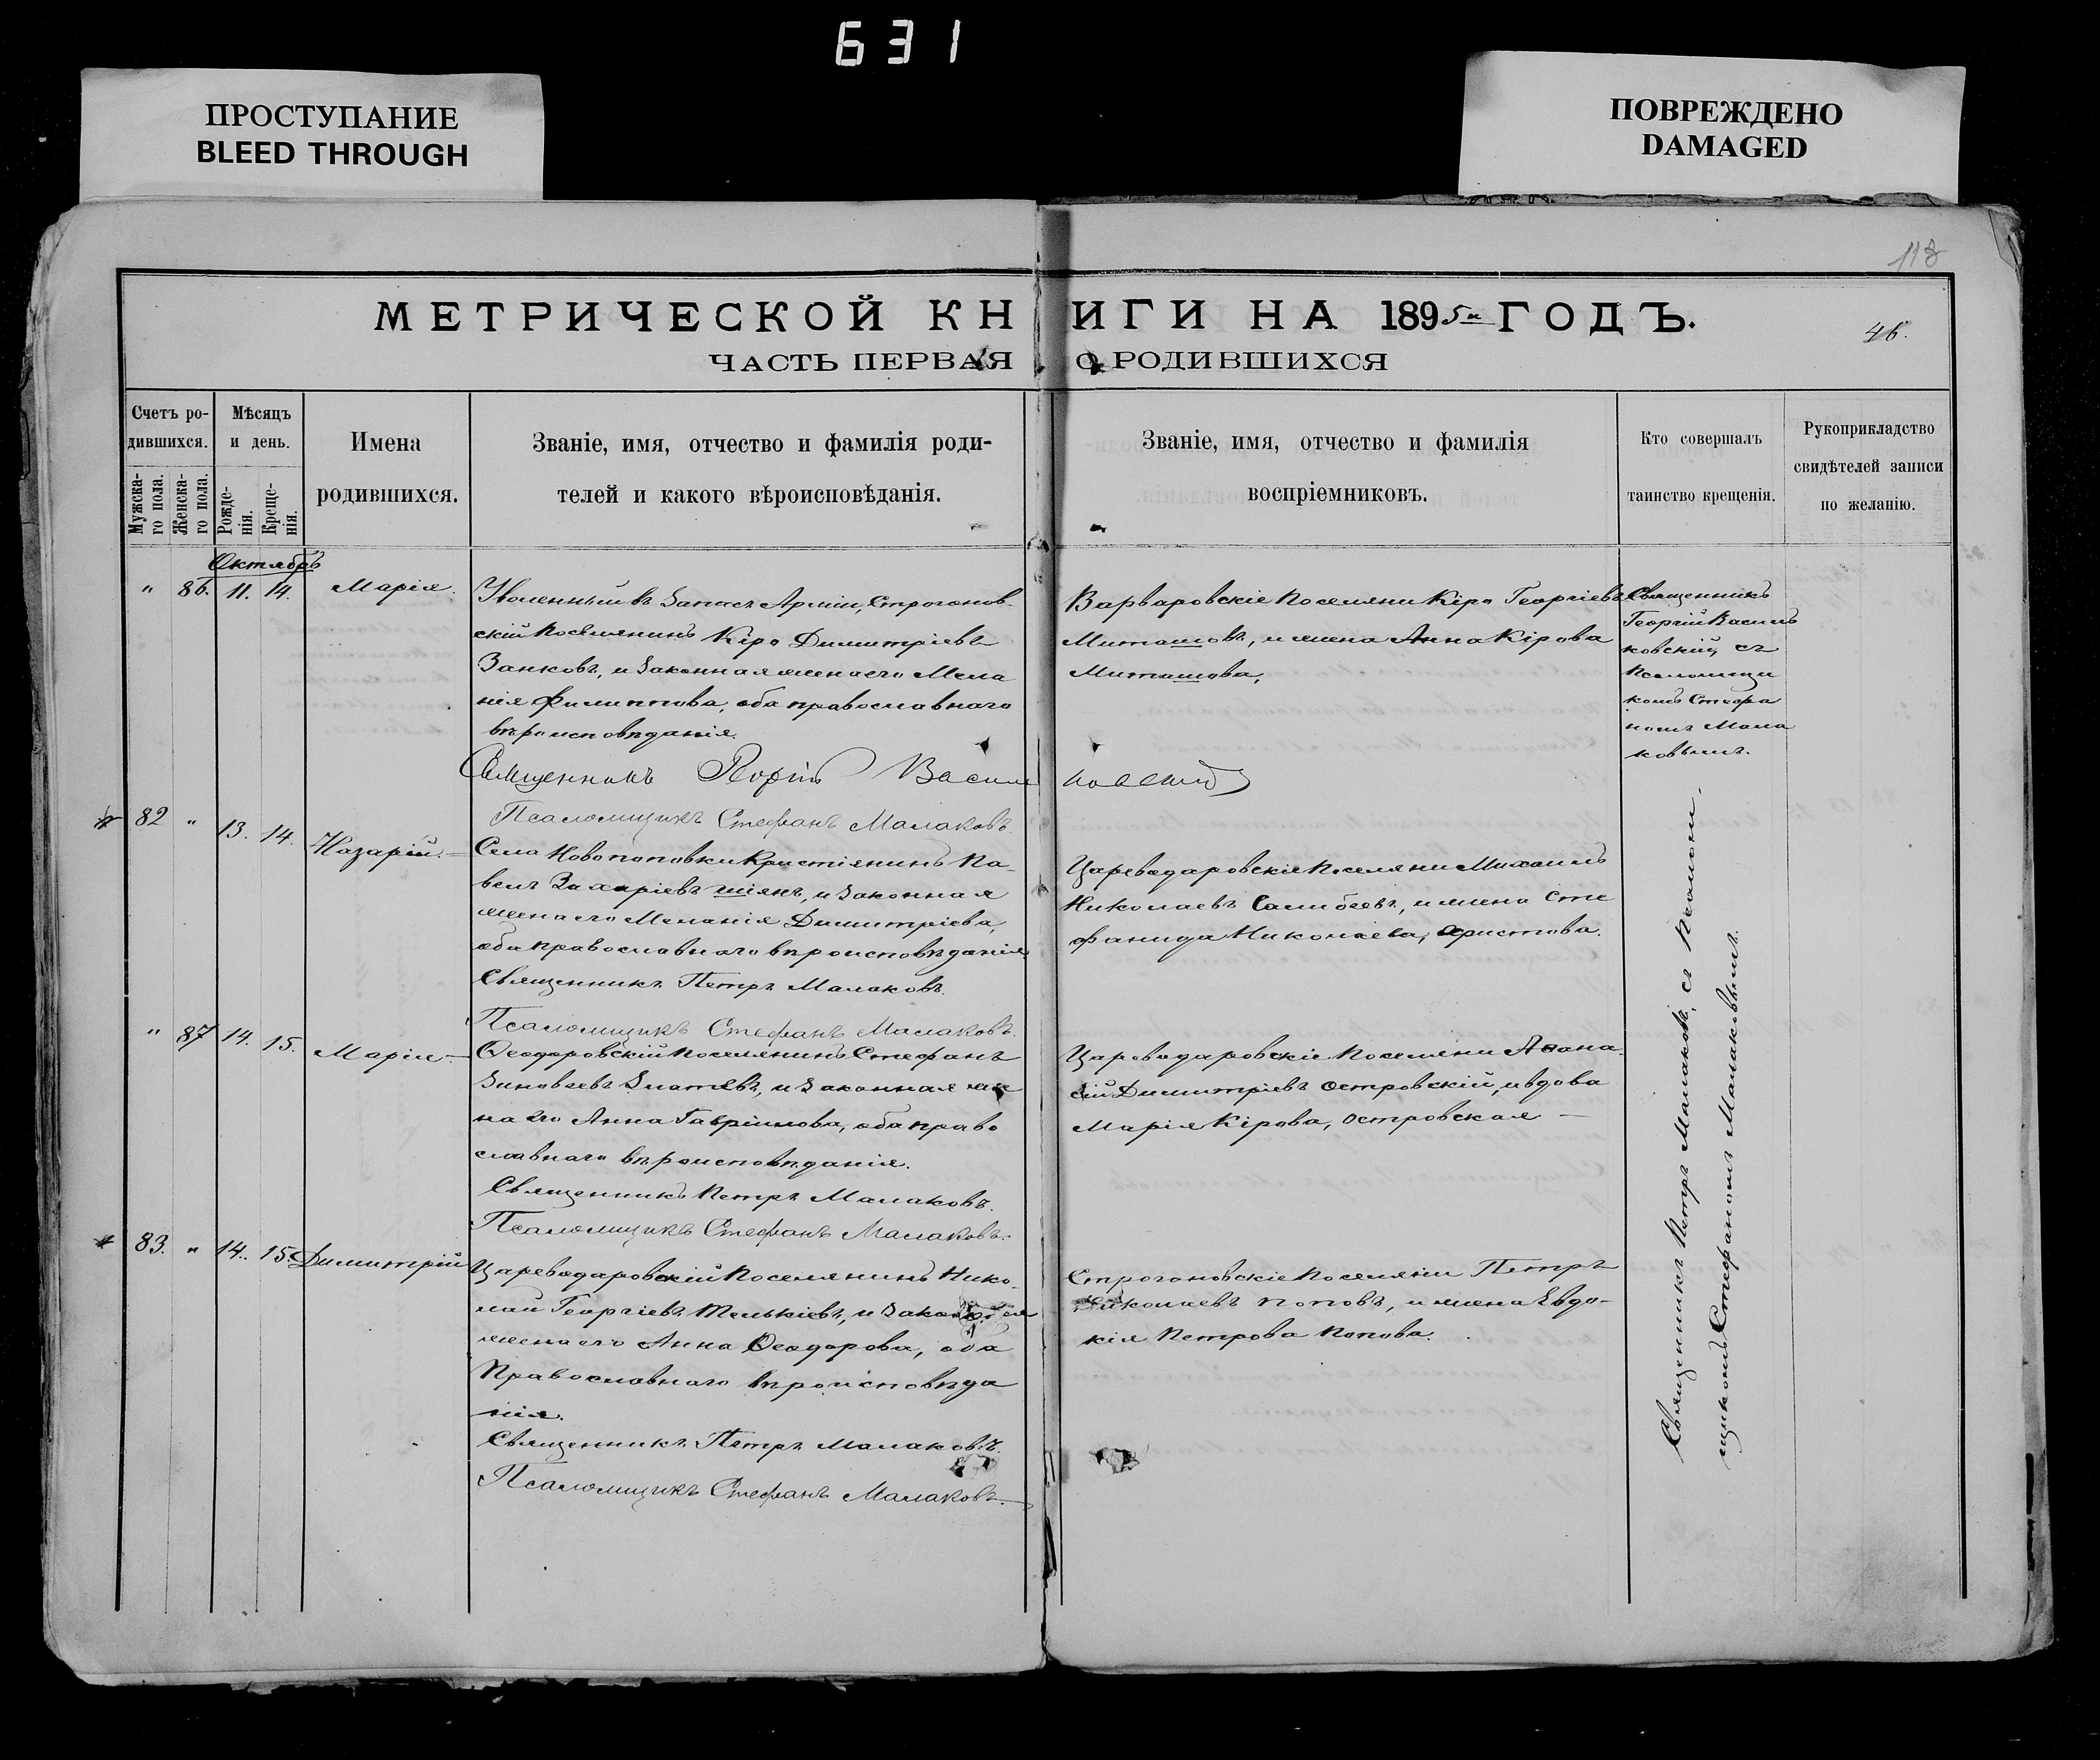 631
ПРОСТУПАНИЕ
BLEED THROUGH
ПОВРЕЖДЕНО
DAMAGED
118
МЕТРИЧЕСКОЙ КНИГИ НА 1895й ГОДЪ.
46.
ЧАСТЬ ПЕРВАЯ О РОДИВШИХСЯ
Счетъ ро-
дившихся.
Мужска-
го пола.
Женска-
го пола.
Мѣсяцъ
и день.
Рожде-
нія.
Креще-
нія.
Имена
родившихся.
Званіе, имя, отчество и фамилія роди-
телей и какого вѣроисповѣданія.
Званіе, имя, отчество и фамилія
воспріемниковъ.
Кто совершалъ
таинство крещенія.
Рукоприкладство
свидѣтелей записи
по желанію.
Октябрь
" 86. 11. 14. Марія.
Уволенный въ Запасъ Арміи, Строганов-
скій Поселянинъ Кіро Димитріевъ
Занковъ, и Законная жена его Мела
нія Филиппова, оба православнаго
вѣроисповѣданія.
Варваровскіе Поселяни Кіро Георгіевъ
Миташовъ, и жена Анна Кірова
Миташова,
Священникъ
Георгій Василь
ковскій, съ
Псаломщи
комъ Стефа
номъ Мала
ковымъ.
Священникъ Георгій Васильковскій
Псаломщикъ Стефанъ Малаковъ.
82 " 13. 14. Назарій.
Села Новопоповки Крестіянинъ Па-
велъ Захаріевъ Шіянъ, и Законная
жена его Меланія Димитріева,
оба православнаго вѣроисповѣданія
Священникъ Петръ Малаковъ.
Псаломщикъ Стефанъ Малаковъ.
Цареводаровскіе Поселяни Михаилъ
Николаевъ Салибеевъ, и жена Сте
фанида Николаева, Христова.
" 87 14. 15. Марія
Ѳеодоровскій Поселянинъ Стефанъ
Зиновеевъ Златевъ, и Законная же
на его Анна Гавріилова, оба право
славнаго вѣроисповѣданія.
Священникъ Петръ Малаковъ.
Псаломщикъ Стефанъ Малаковъ.
Цареводаровскіе Поселяни Аѳана-
сій Димитріевъ Островскій, и вдова
Марія Кірова, Островская
83. " 14. 15. Димитрій
Цареводаровскій Поселянинъ Нико-
лай Георгіевъ Телькіевъ, и Законная
жена его Анна Ѳеодорова, оба
Православнаго вѣроисповѣда
нія.
Священникъ Петръ Малаковъ.
Псаломщикъ Стефанъ Малаковъ.
Строгоновскіе Поселяни Петръ
Николаевъ Поповъ, и жена Евдо-
кія Петрова Попова.
Священникъ Петръ Малаковъ, съ Псалом-
щикомъ Стефаномъ Малаковымъ.